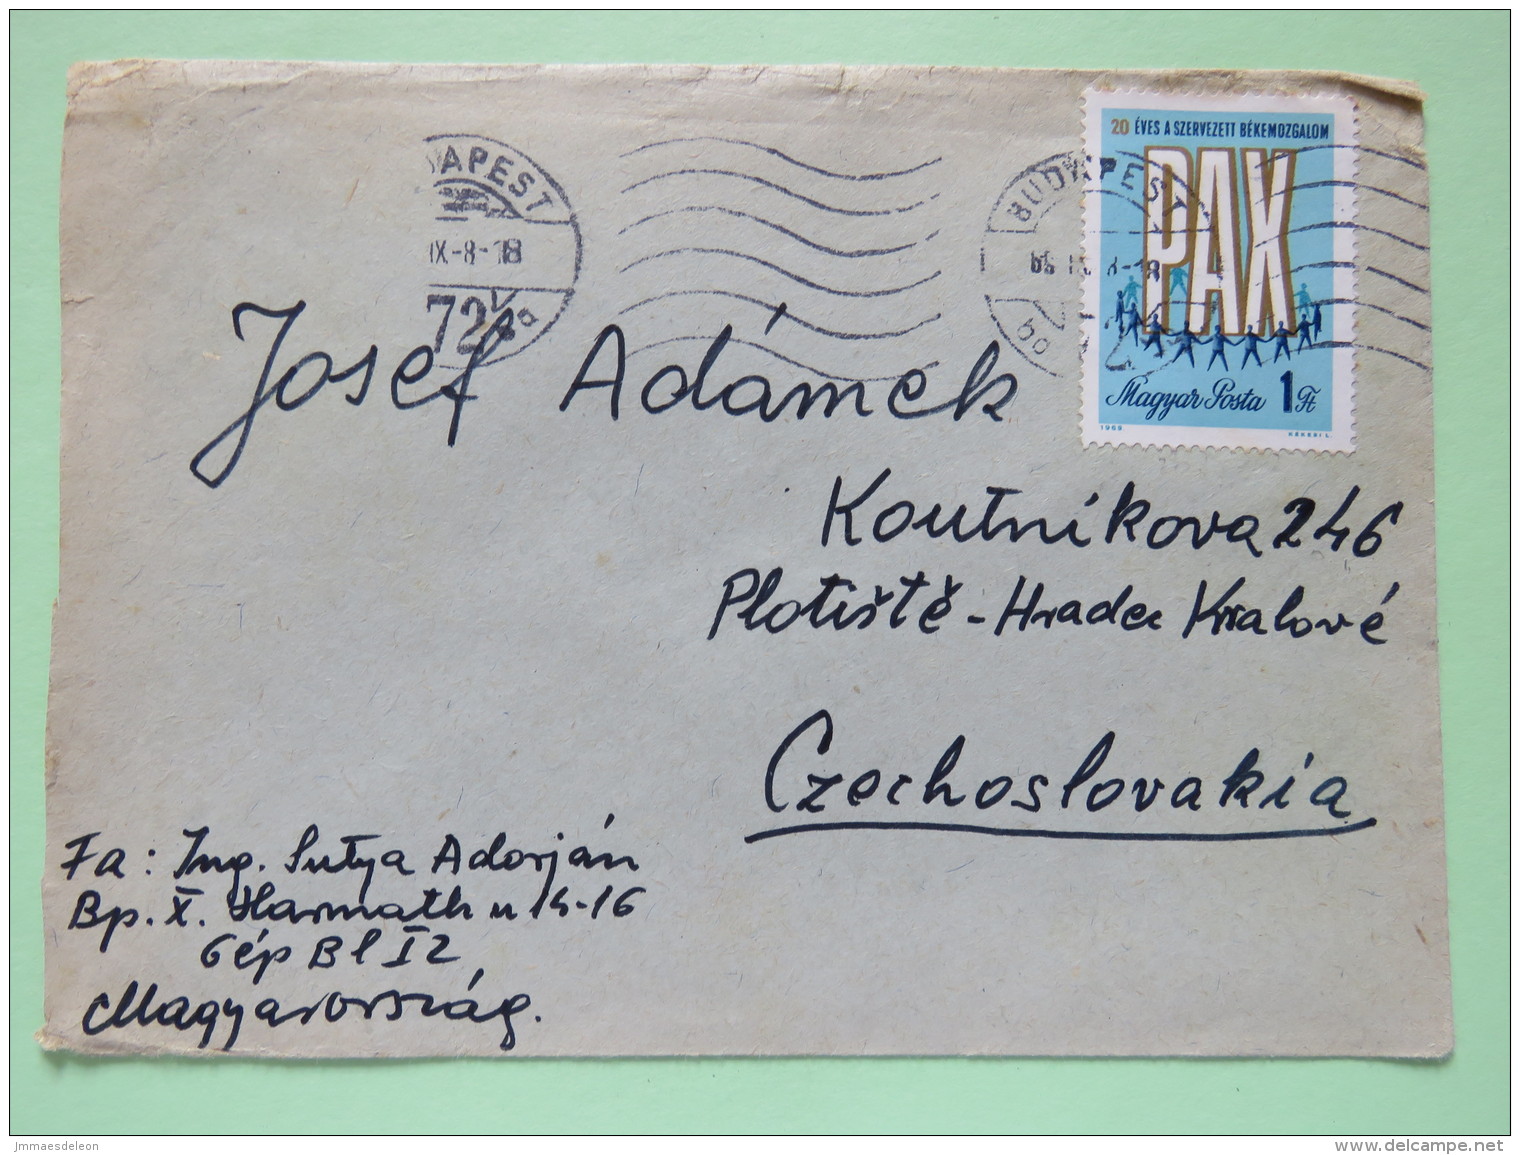 20 ÉVES A SZERVEZETT BÉKEMOZGALOM
PAX
Magyar Posta 1 Ft
1969 KÉKESI L.
DAPEST
IX-8-18
72
BUDAPEST
Josef Adámek
Koutníkova 246
Plotiště - Hradec Králové
Czechoslovakia
Fa: Ing. Sutya Adorján
Bp. X. Harmath u 14-16
Gép Bl I 2
Magyarország.
jmmaesdeleon
www.delcampe.net